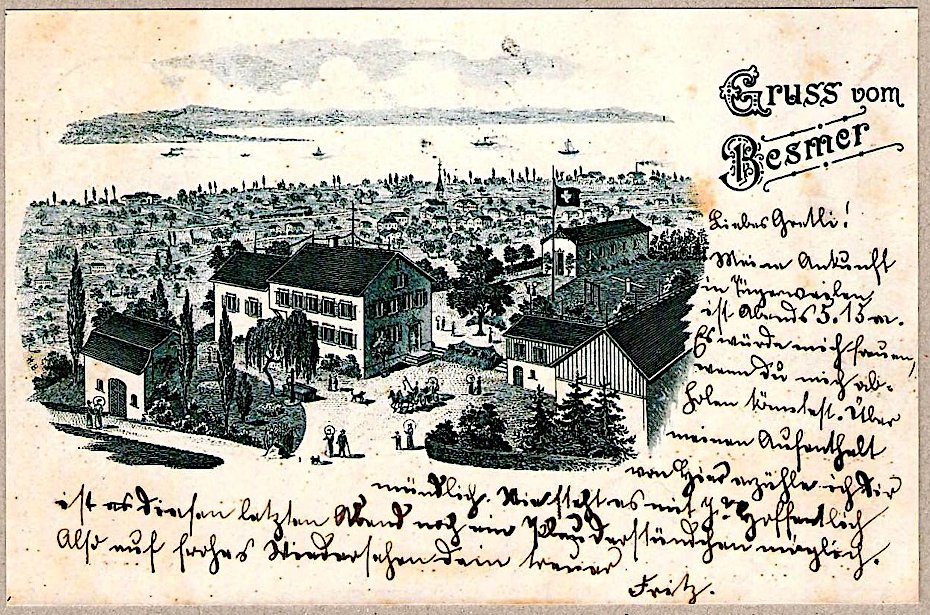 Gruss vom
Besmer
Liebes Gretli!
Meine Ankunft
in Tägerweilen
ist Abends 5.15 m.
Es würde mich freuen,
wenn Du mich ab-
holen könntest. Über
meinen Aufenthalt
von Hier erzähle ich Dir
mündlich. Wie steht es mit Hoffentlich
ist es diesen letzten Abend noch ein Plauderstündchen möglich.
Also auf frohes Wiedersehen dein treuer
Fritz.